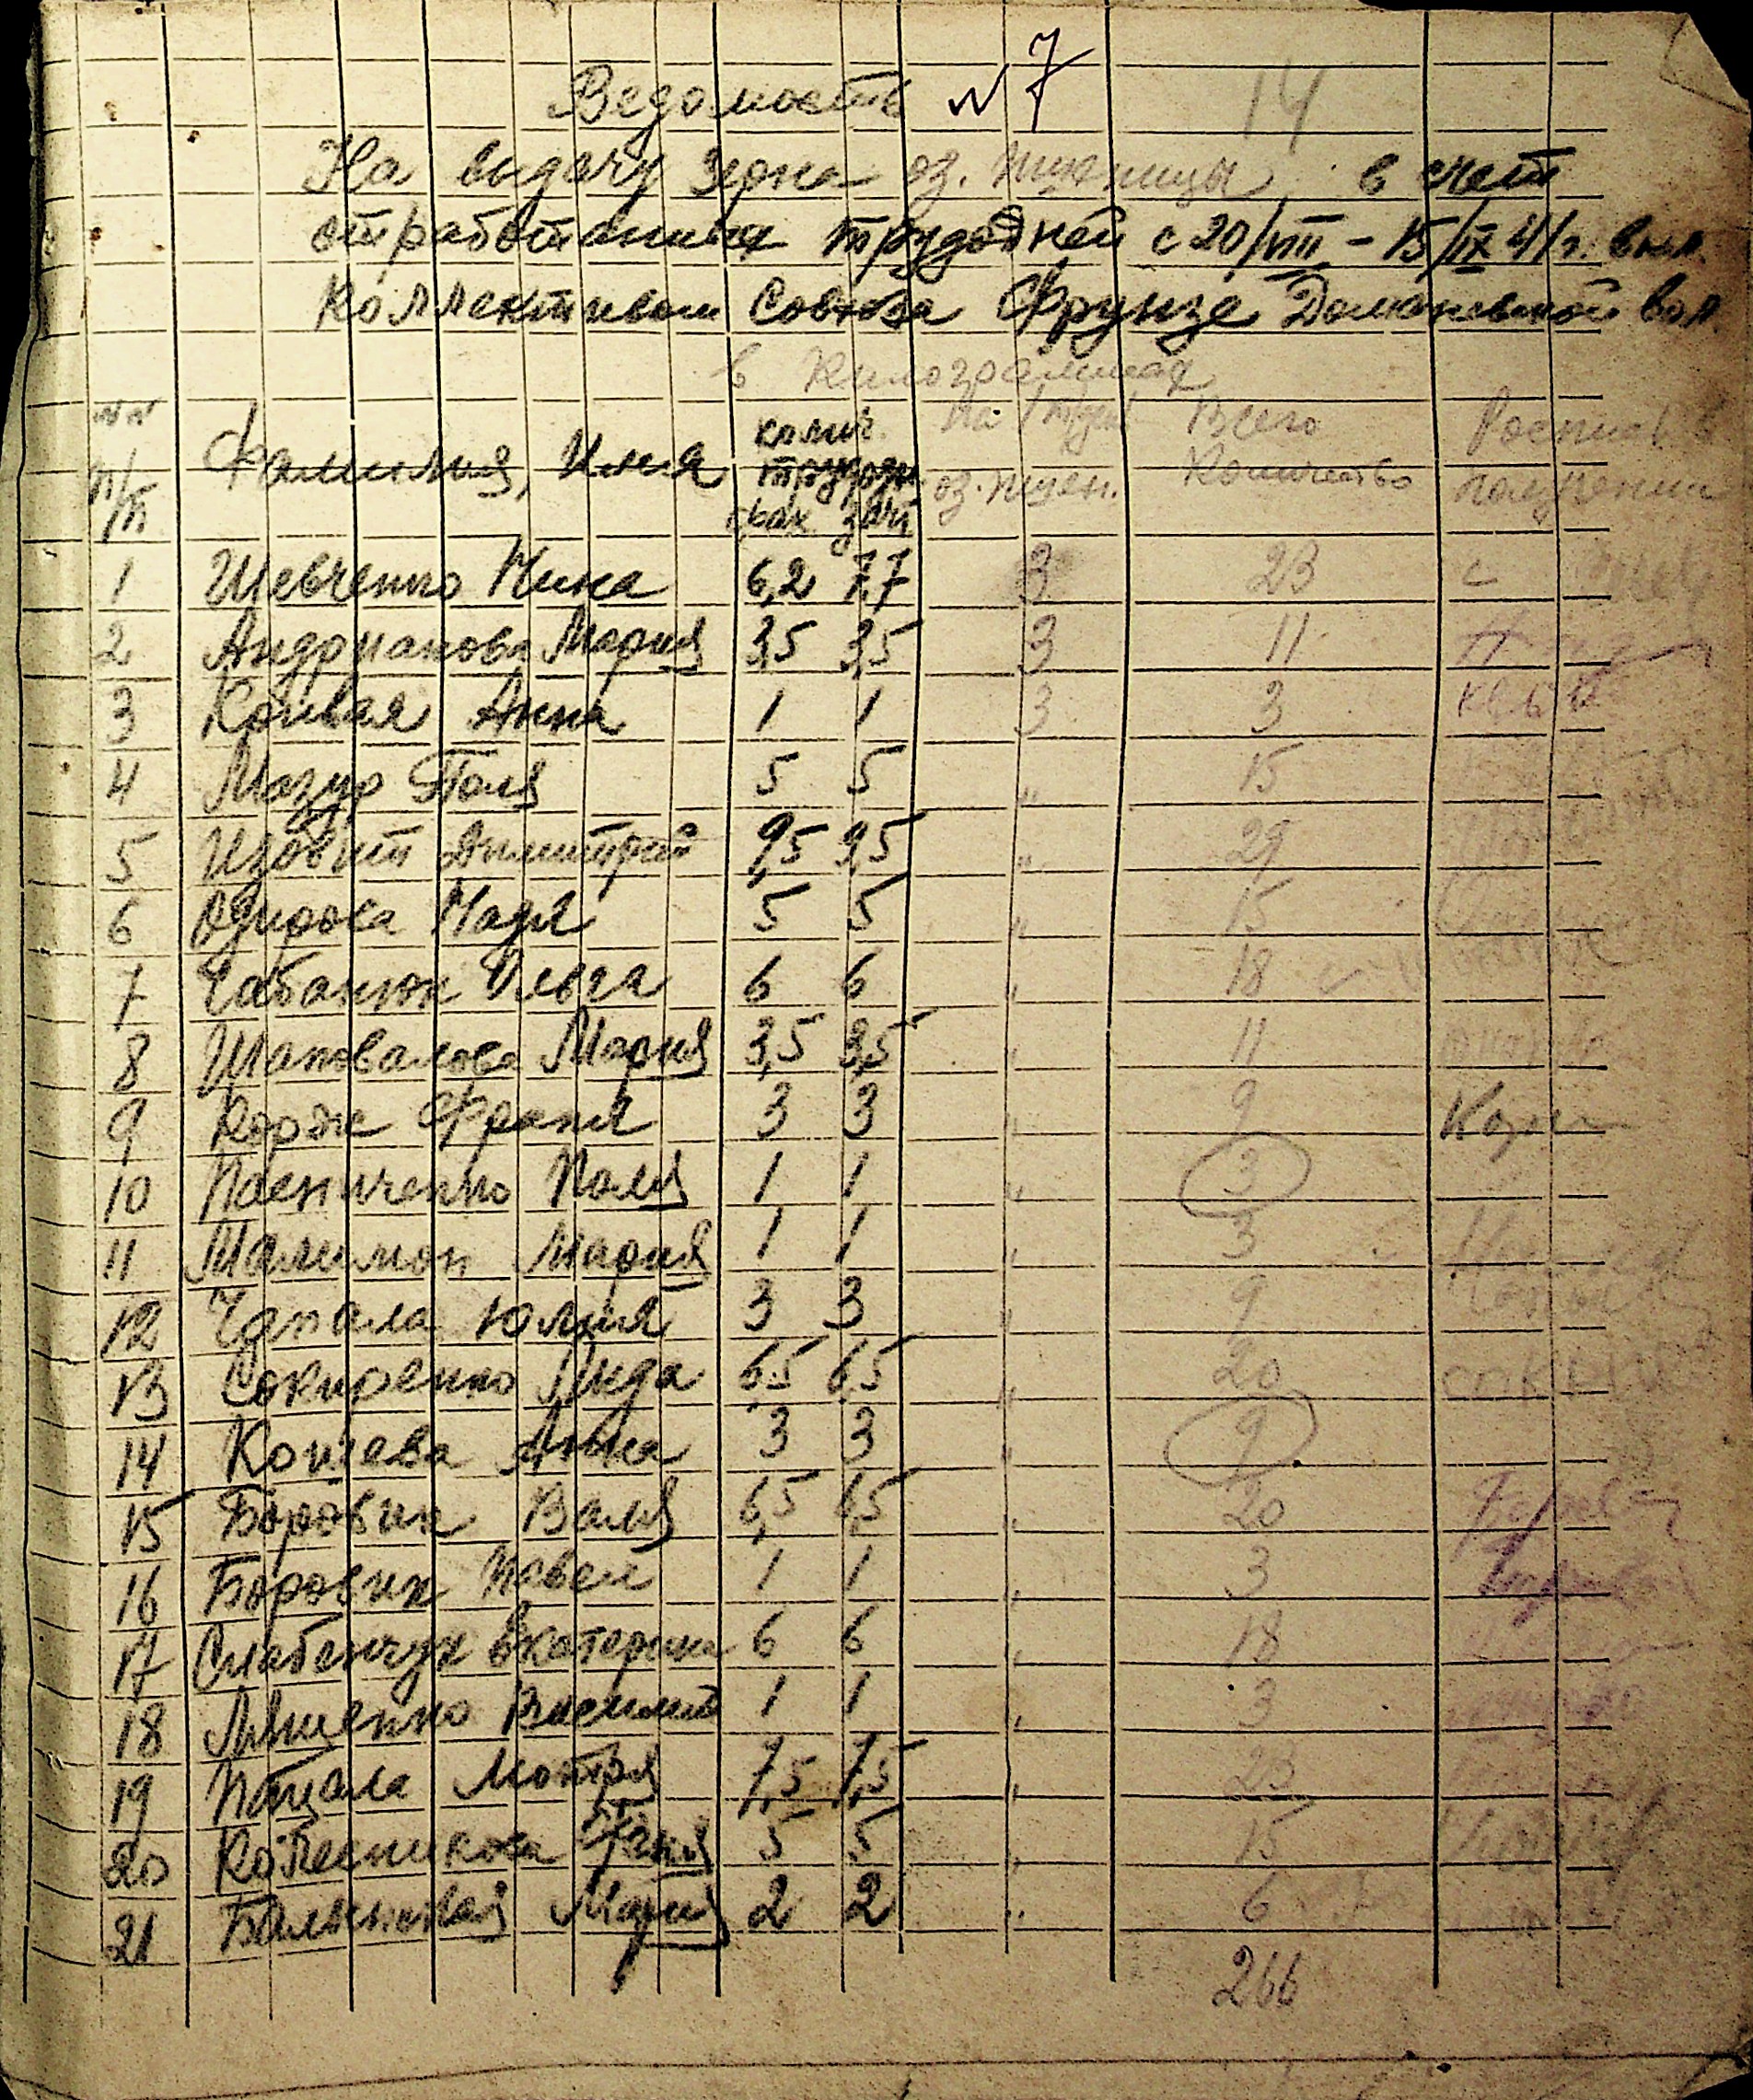 Ведомость №7
14
На выдачу зерна оз. пшеницы в счет
отработанных трудодней с 20/VIII - 15/IX 41 г. вкл.
Коллективом Совхоза Фрунзе Доманевской вол.
в килограммах
№№ п/п Фамилия, Имя колич. трудодн. факт. зачт. На 1 труд. оз. пшен. Всего количество Роспись в получении
1 Шевченко Нина 6,2 7,7 3 23
2 Андрианова Мария 3,5 3,5 3 11
3 Кривая Анна 1 1 3 3
4 Мазур Поля 5 5 " 15
5 Изовит Димитрий 9,5 9,5 " 29
6 Надя 5 5 " 15
7 Чабанюк Ольга 6 6 " 18
8 Шаповалова Мария 3,5 3,5 " 11
9 Корж Франя 3 3 " 9 Корж
10 Пасниченко Поля 1 1 " 3
11 Малимон Мария 1 1 " 3
12 Чапала Юлия 3 3 " 9
13 Сокиренко Лида 6,5 6,5 " 20
14 Копцева Анна 3 3 " 9
15 Боровик Валя 6,5 6,5 " 20
16 Боровик Павел 1 1 " 3
17 Слабенчук Екатерина 6 6 " 18
18 Лященко Василий 1 1 " 3
19 Пацала Мотря 7,5 7,5 " 23
20 Колесникова 5 5 " 15
21 Мария 2 2 " 6
266